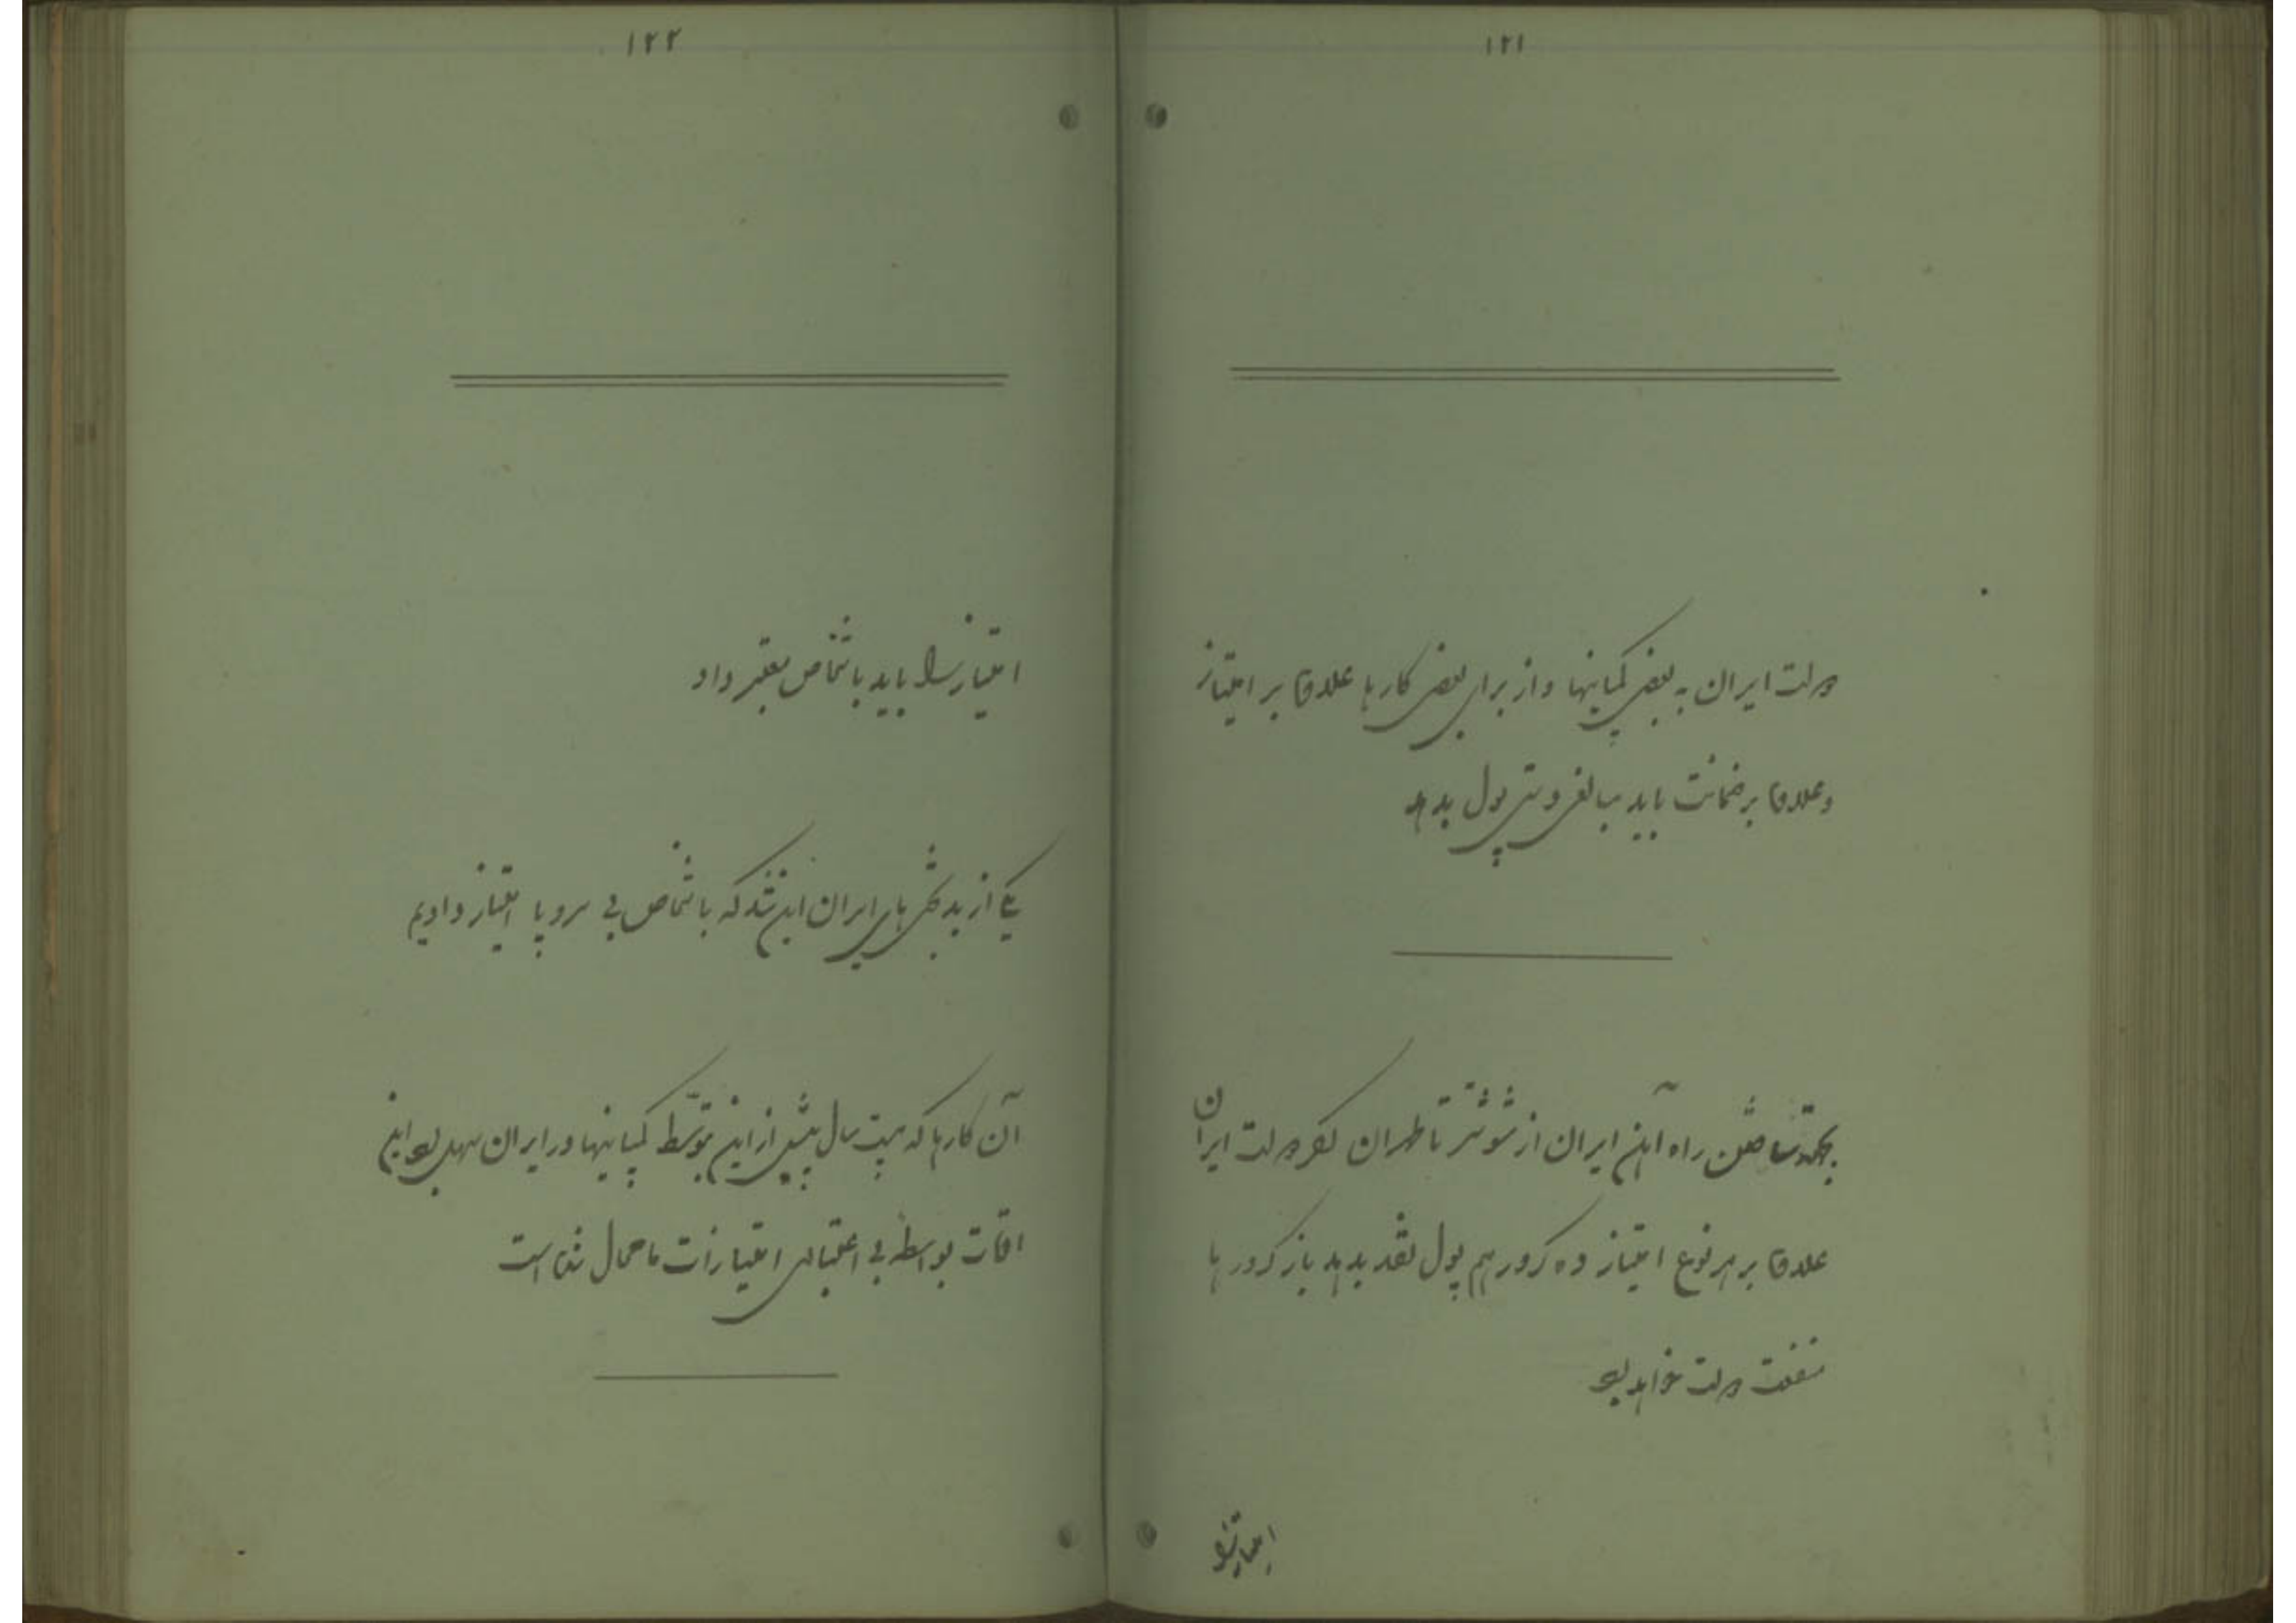 ۱۲۱
دولت ایران به بعضی کمپانیها و از برای بعضی کارها علاوه بر امتیاز
و علاوه بر ضمانت باید مبالغی دستی پول بدهد
بجهة ساختن راه آهن ایران از شوشتر تا طهران اگر دولت ایران
علاوه بر هر نوع امتیاز ده کرور هم پول نقد بدهد باز کرورها
منفعت دولت خواهد بود
امتیازرا
۱۲۲
امتیازرا باید باشخاص معتبر داد
یکی از بدبختی‌های ایران این شد که باشخاص بی سر و پا امتیاز دادیم
آن کارها که بیست سال پیش از این بتوسّط کمپانیها در ایران سهل بود این
اوقات بواسطه بی اعتباری امتیازات ما محال شده است